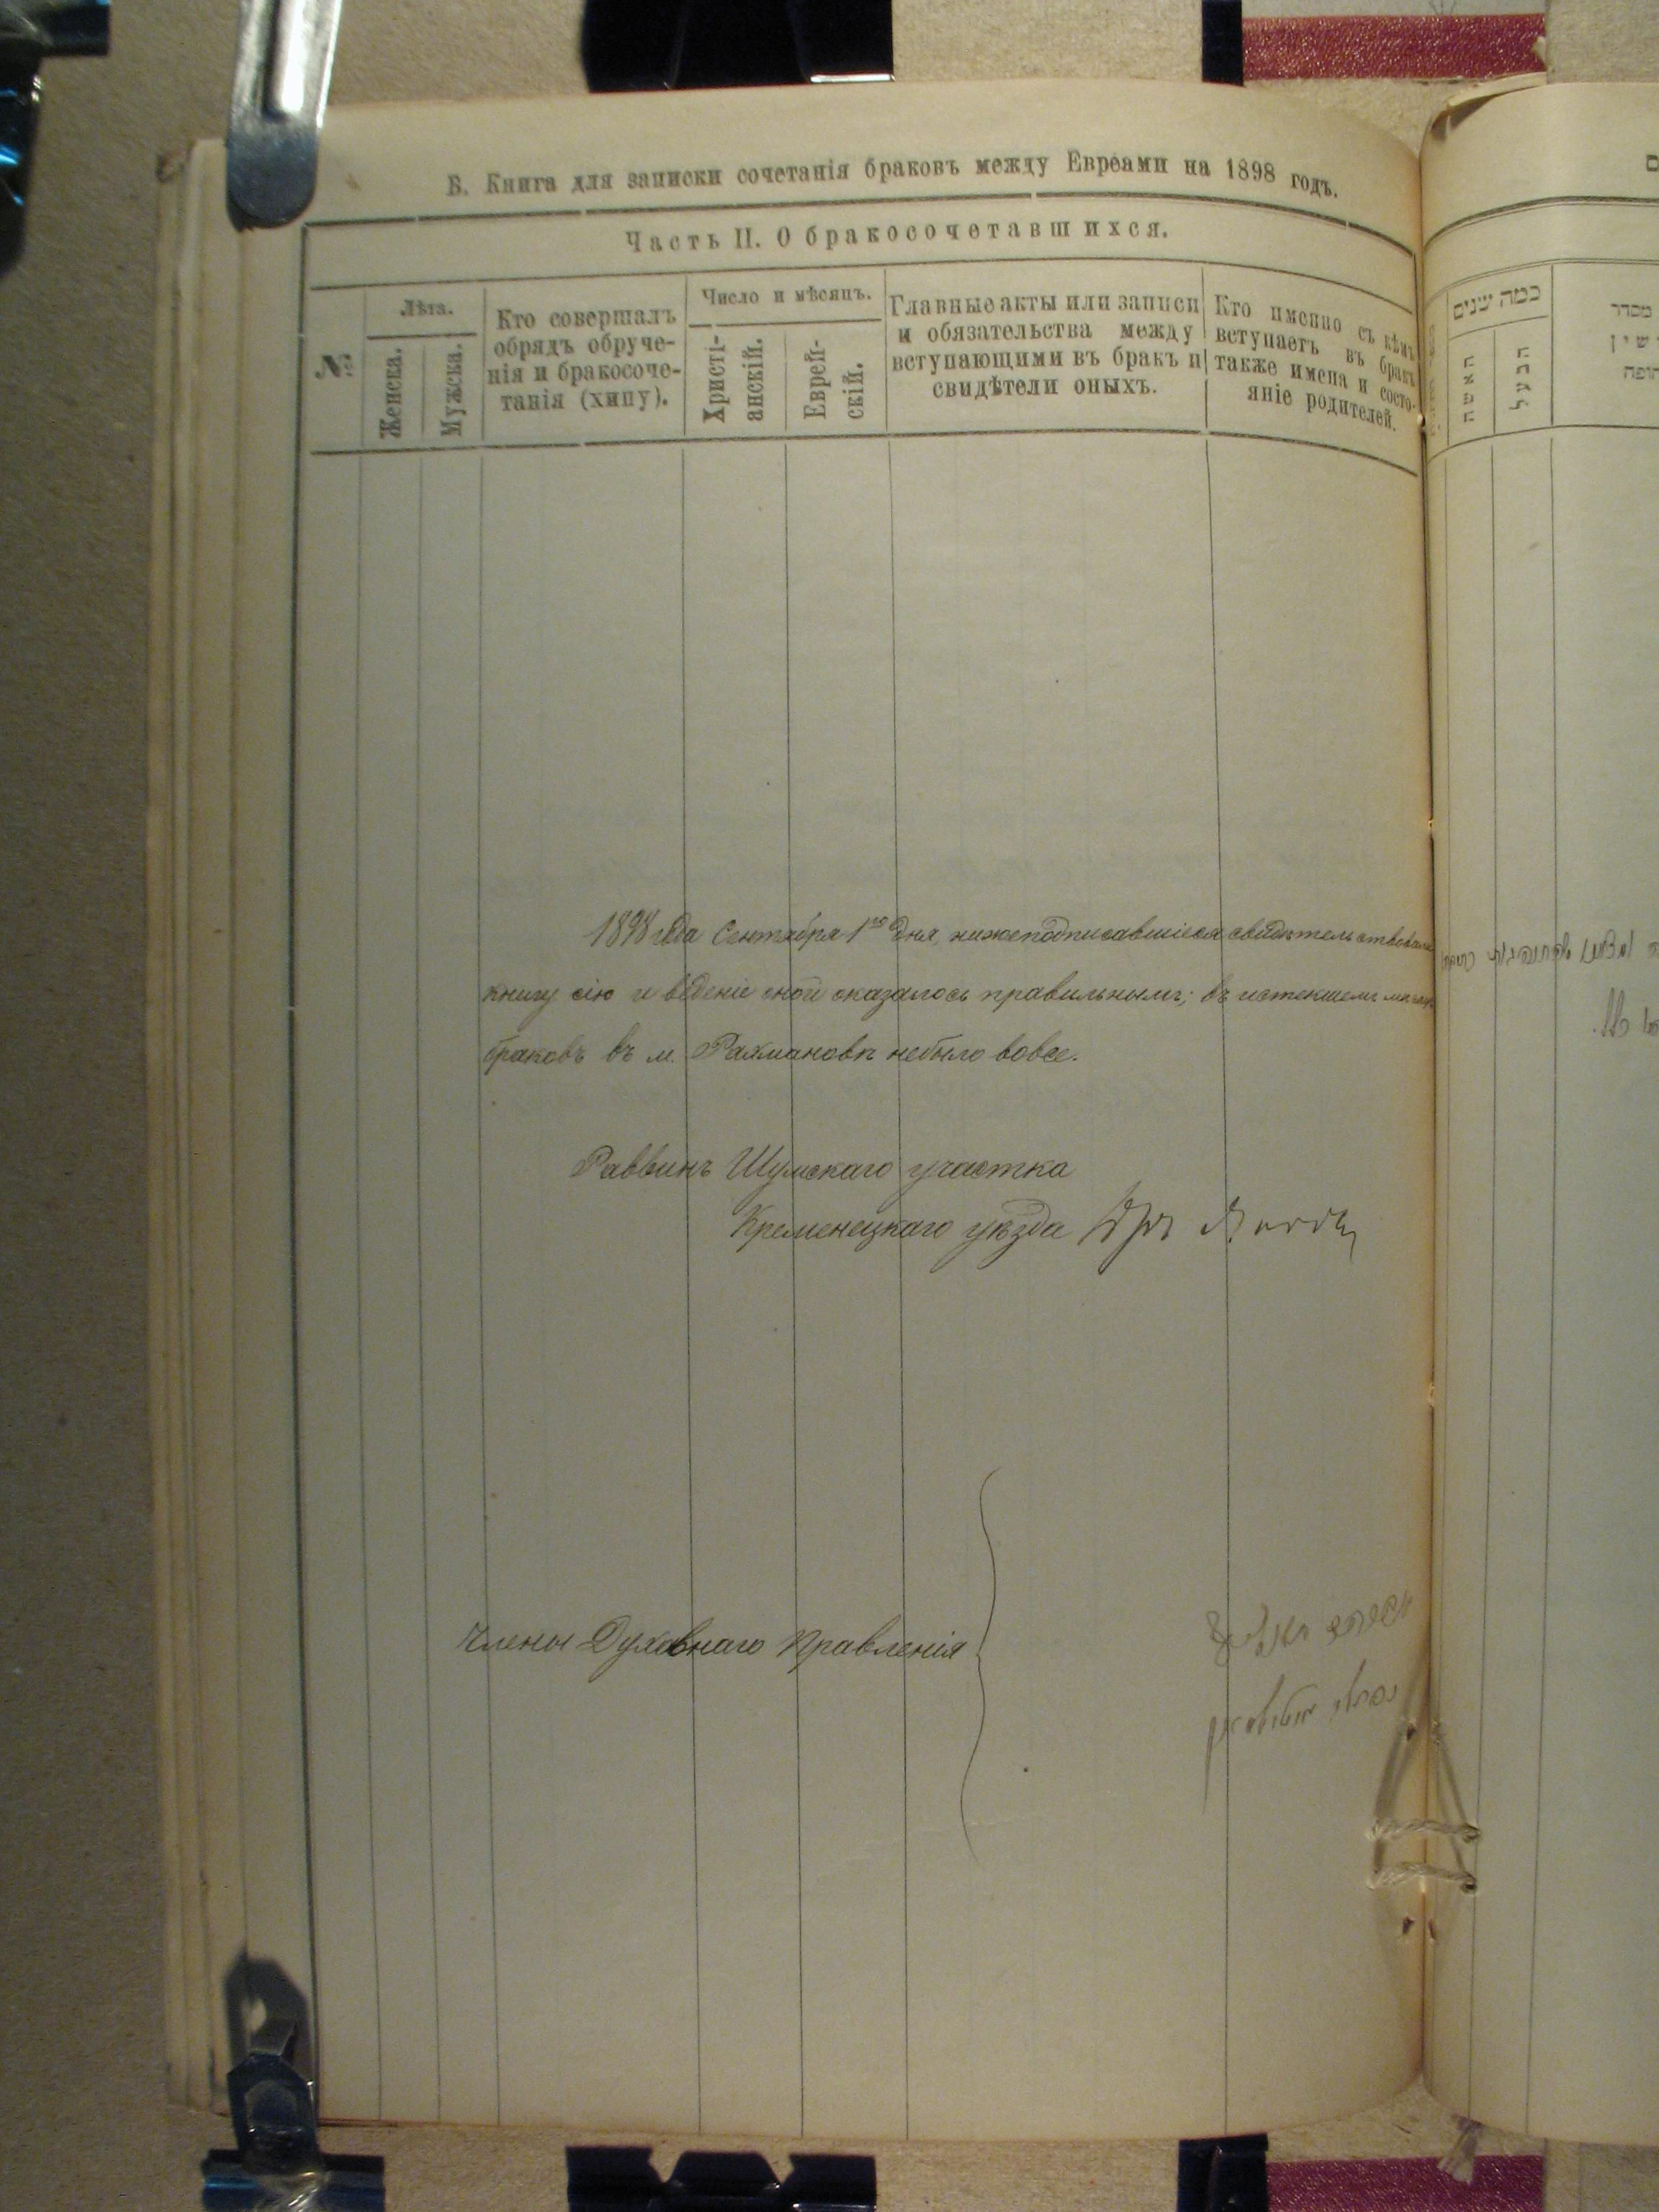 В. Книга для записки сочетанія браковъ между Евреами на 1898 годъ.
Часть II. О бракосочетавшихся.
№
Лѣта.
Женска.
Мужска.
Кто совершалъ
обрядъ обруче-
нія и бракосоче-
танія (хипу).
Число и мѣсяцъ.
Христі-
анскій.
Еврей-
скій.
Главные акты или записи
и обязательства между
вступающими въ бракъ и
свидѣтели оныхъ.
Кто именно съ кѣмъ
вступаетъ въ бракъ
также имена и состо-
яніе родителей.
1898 года Сентября 1го дня, нижеподписавшіеся свидѣтельствовали
книгу сію и веденіе оной оказалось правильнымъ; въ истекшемъ мѣсяцѣ
браковъ въ м. Рахмановкѣ небыло вовсе.
Раввинъ Шумскаго участка
Кременецкаго уѣзда
Члены Духовнаго Правленія
כמה שנים
האשה
הבעל
מסדר